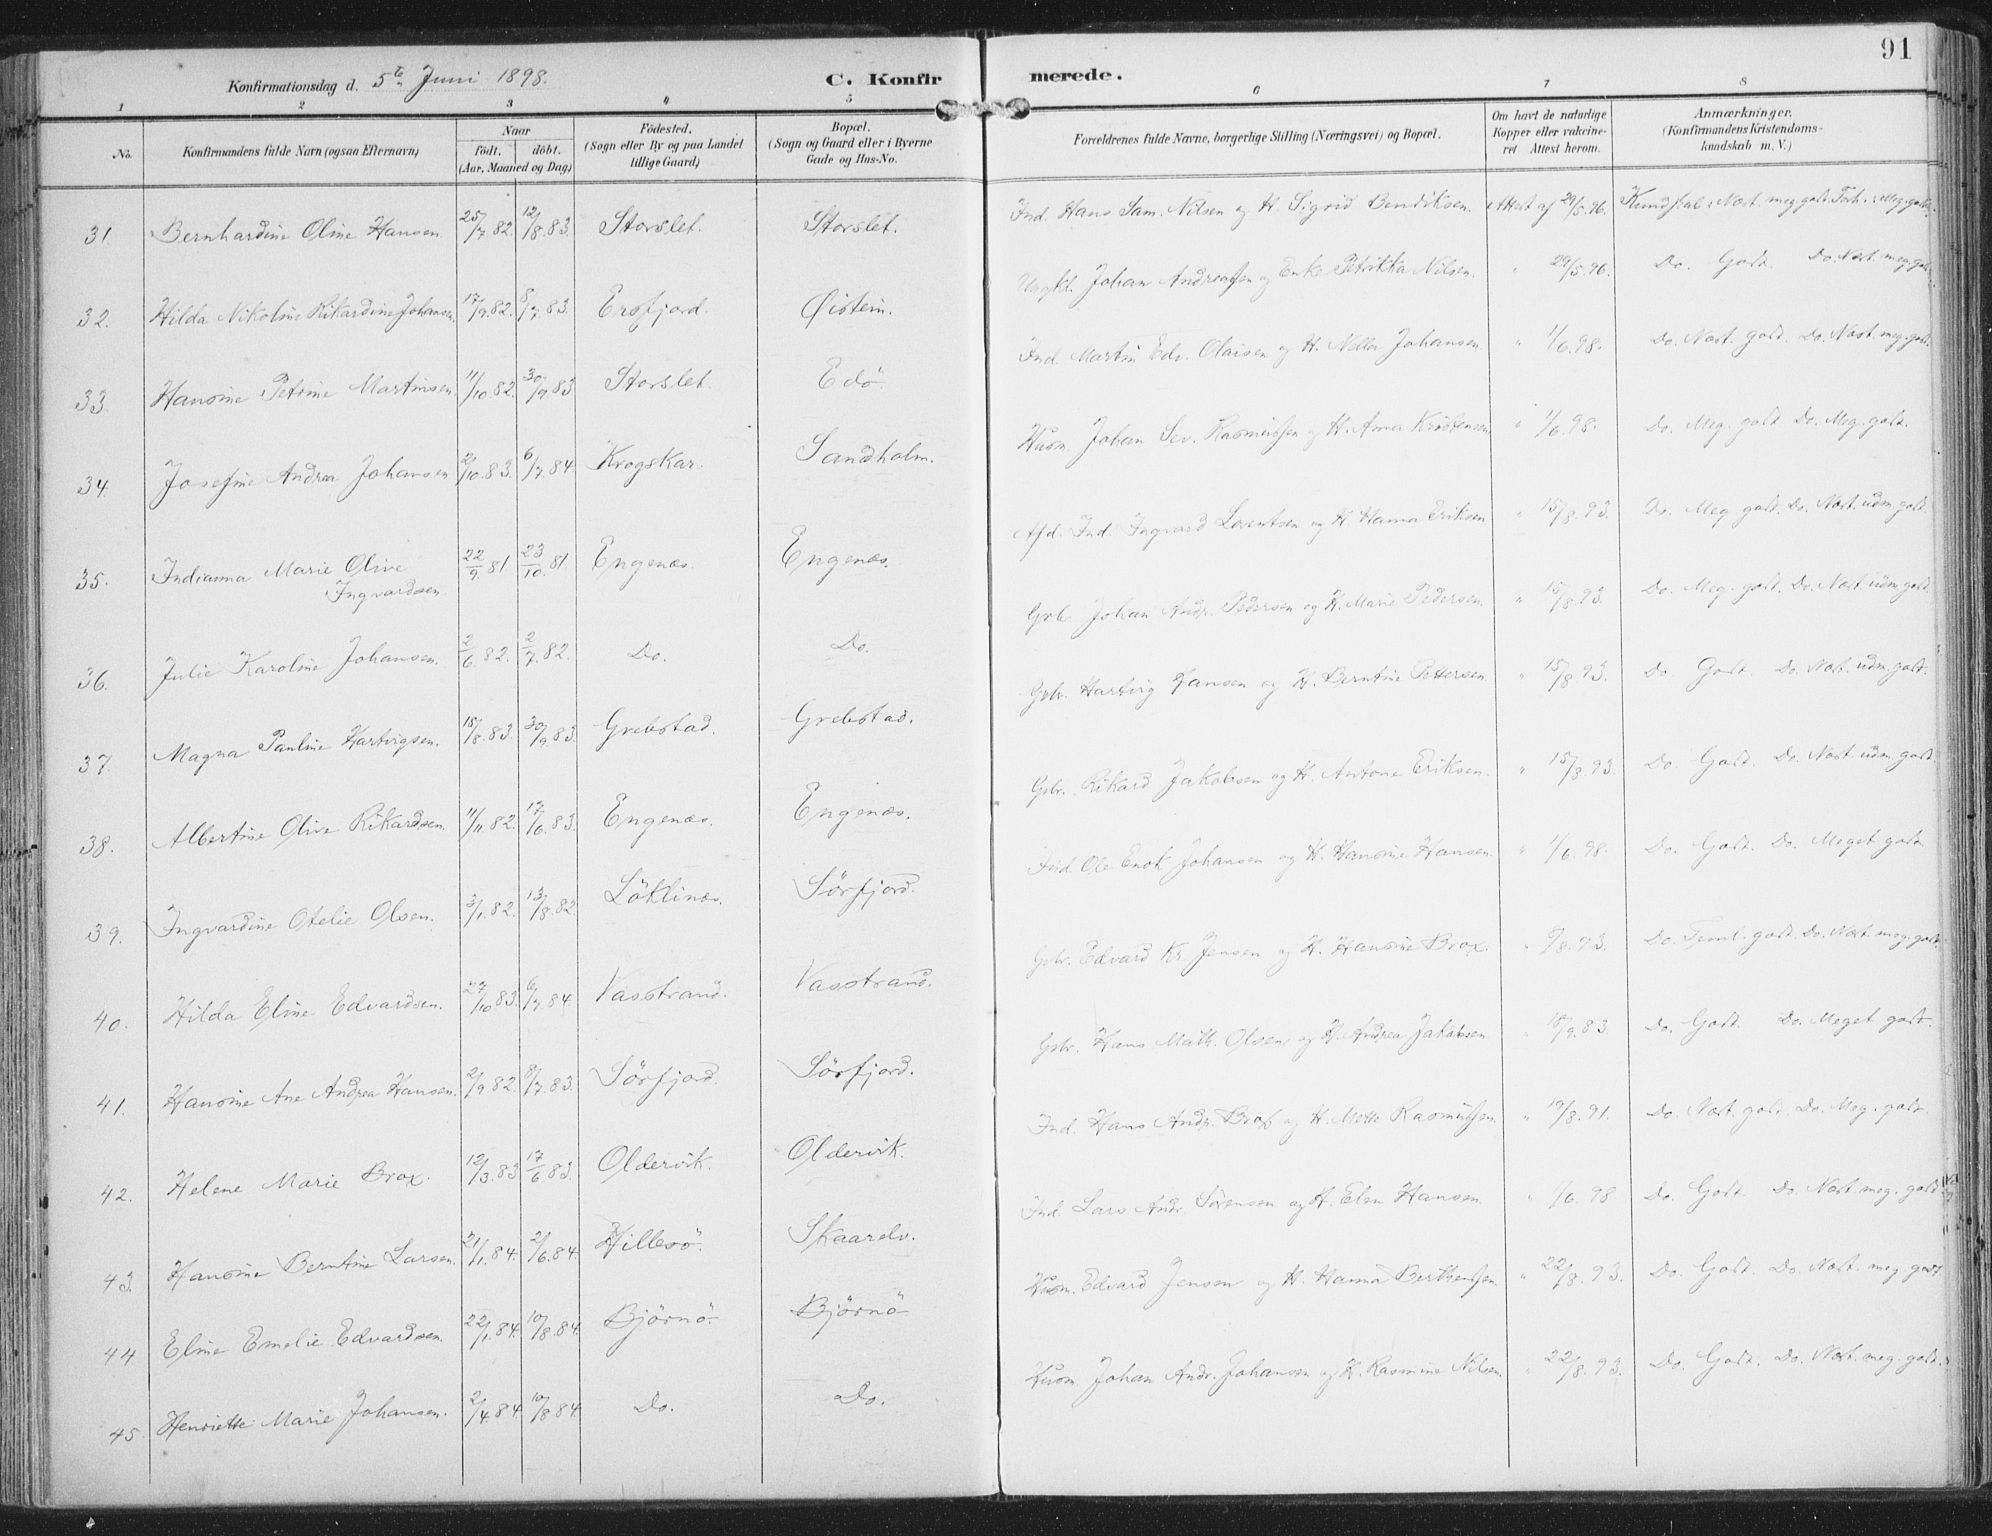 91
Konfirmationsdag d. 5te Juni 1898. C. Konfirmerede.
1 2 3 4 5 6 7 8
No. Konfirmandens fulde Navn (ogsaa Efternavn) Naar Født. døbt. (Aar, Maaned og Dag) Födested. (Sogn eller By og paa Landet tillige Gaard) Bopæl. (Sogn og Gaard eller i Byerne Gade og Hus-No. Forældrenes fulde Navne, borgerlige Stilling (Næringsvei) og Bopæl. Om havt de naturlige Kopper eller vakcineret Attest herom. Anmærkninger. (Konfirmandens Kristendomskundskab m. V.)
31. Bernhardine Oline Hansen. 25/7 82. 12/8 83. Storslet. Storslet. Ind. Hans Sam. Nilsen og H. Sigrid Bendiksen. Attest af 29/5.96. Kundskab: Næst. meg. godt. Forh.: Meg. godt.
32. Hilda Nikoline Rikardine Johansen. 17/9.82. 8/7.83. Ersfjord. Øistein. Ungkl. Johan Andreassen og Enke Petrikka Nilsen. " 29/5.96. Do. Godt. Do. Næst. meg. godt.
33. Hansine Petrine Martinsen 11/10.82. 30/9 83 Storslet. Edö. Ind. Martin Edv. Olaisen og H. Nella Johansen. " 1/6.98. Do. Næst. godt. Do. Næst. meg. godt.
34. Josefine Andrea Johansen 2/10.83. 6/7 84. Krogskar. Sandholm. Husm. Johan Sev. Rasmussen og H. Anna Kristensen " 1/6.98. Do. Meg. godt. Do. Meg. godt.
35. Indianna Marie Olive Ingvardsen 22/9 81 23/10. 81 Engenæs. Engenæs. Afd. Ind. Ingvard Lorentsen og H. Hanna Eriksen " 15/8.93. Do. Meg. godt. Do. Næst. udm. godt.
36. Julie Karoline Johansen. 2/6.82. 2/7.82. Do. Do. Gbr. Johan Andr. Pedersen og H. Marie Pedersen. " 15/8.93. Do. Meg. godt. Do. Næst. udm. godt.
37. Magna Pauline Hartvigsen. 15/8.83. 30/9.83. Grebstad. Grebstad. Gbr. Hartvig Hansen og H. Berntine Pettersen. " 15/8 93. Do. Godt. Do. Næst. udm. godt.
38. Albertine Olive Rikardsen. 11/11.82. 17/6.83. Engenæs. Engenæs. Gbr. Rikard Jakobsen og H. Antone Eriksen. " 15/8.93. Do. Godt. Do. Næst. udm. godt.
39. Ingvardine Otelie Olsen. 3/1.82. 13/8.82. Löklinæs. Sörfjord. Ind. Ole Enok Johansen og H. Hansine Hansen. " 1/6.98. Do. Godt. Do. Meget godt
40. Hilda Eline Edvardsen. 27/10 83. 6/7 84. Vasstrand. Vasstrand. Gbr. Edvard Kr. Jensen og H. Hansine Brox. " /8.93. Do. Teml. godt. Do. Næst. meg. godt.
41. Hansine Ane Andrea Hansen. 2/9 82. 8/7.83. Sörfjord. Sörfjord. Gbr. Hans Math. Olsen og H. Andrea Jakobsen " 18/9.83. Do. Godt. Do. Meget godt.
42. Helene Marie Brox. 12/3.83 17/6 83. Oldervik. Oldervik. Ind. Hans Andr. Brox og H. Mette Rasmussen. " 19/8.91. Do. Næst. godt. Do. Meg. godt.
43. Hansine Berntine Larsen. 21/1.84. 2/6.84. Hillesö. Skaarelv. Ind. Lars Andr. Sörensen og H. Elen Hansen. " 1/6. 98 Do. Godt. Do. Næst. meg. godt
44. Eline Emelie Edvardsen. 22/1.84. 10/8.84. Björnö. Björnö Husm. Edvard Jensen og H. Hanna Berthensen. " 22/8.93. Do. Godt. Do. Næst. meg. godt.
45. Henriette Marie Johansen. 2/4.84. 10/8 84 Do. Do. Husm. Johan Andr. Johansen og H. Rasmine Nilsen. " 22/8.93. Do. Godt. Do. Næst. meg. godt.